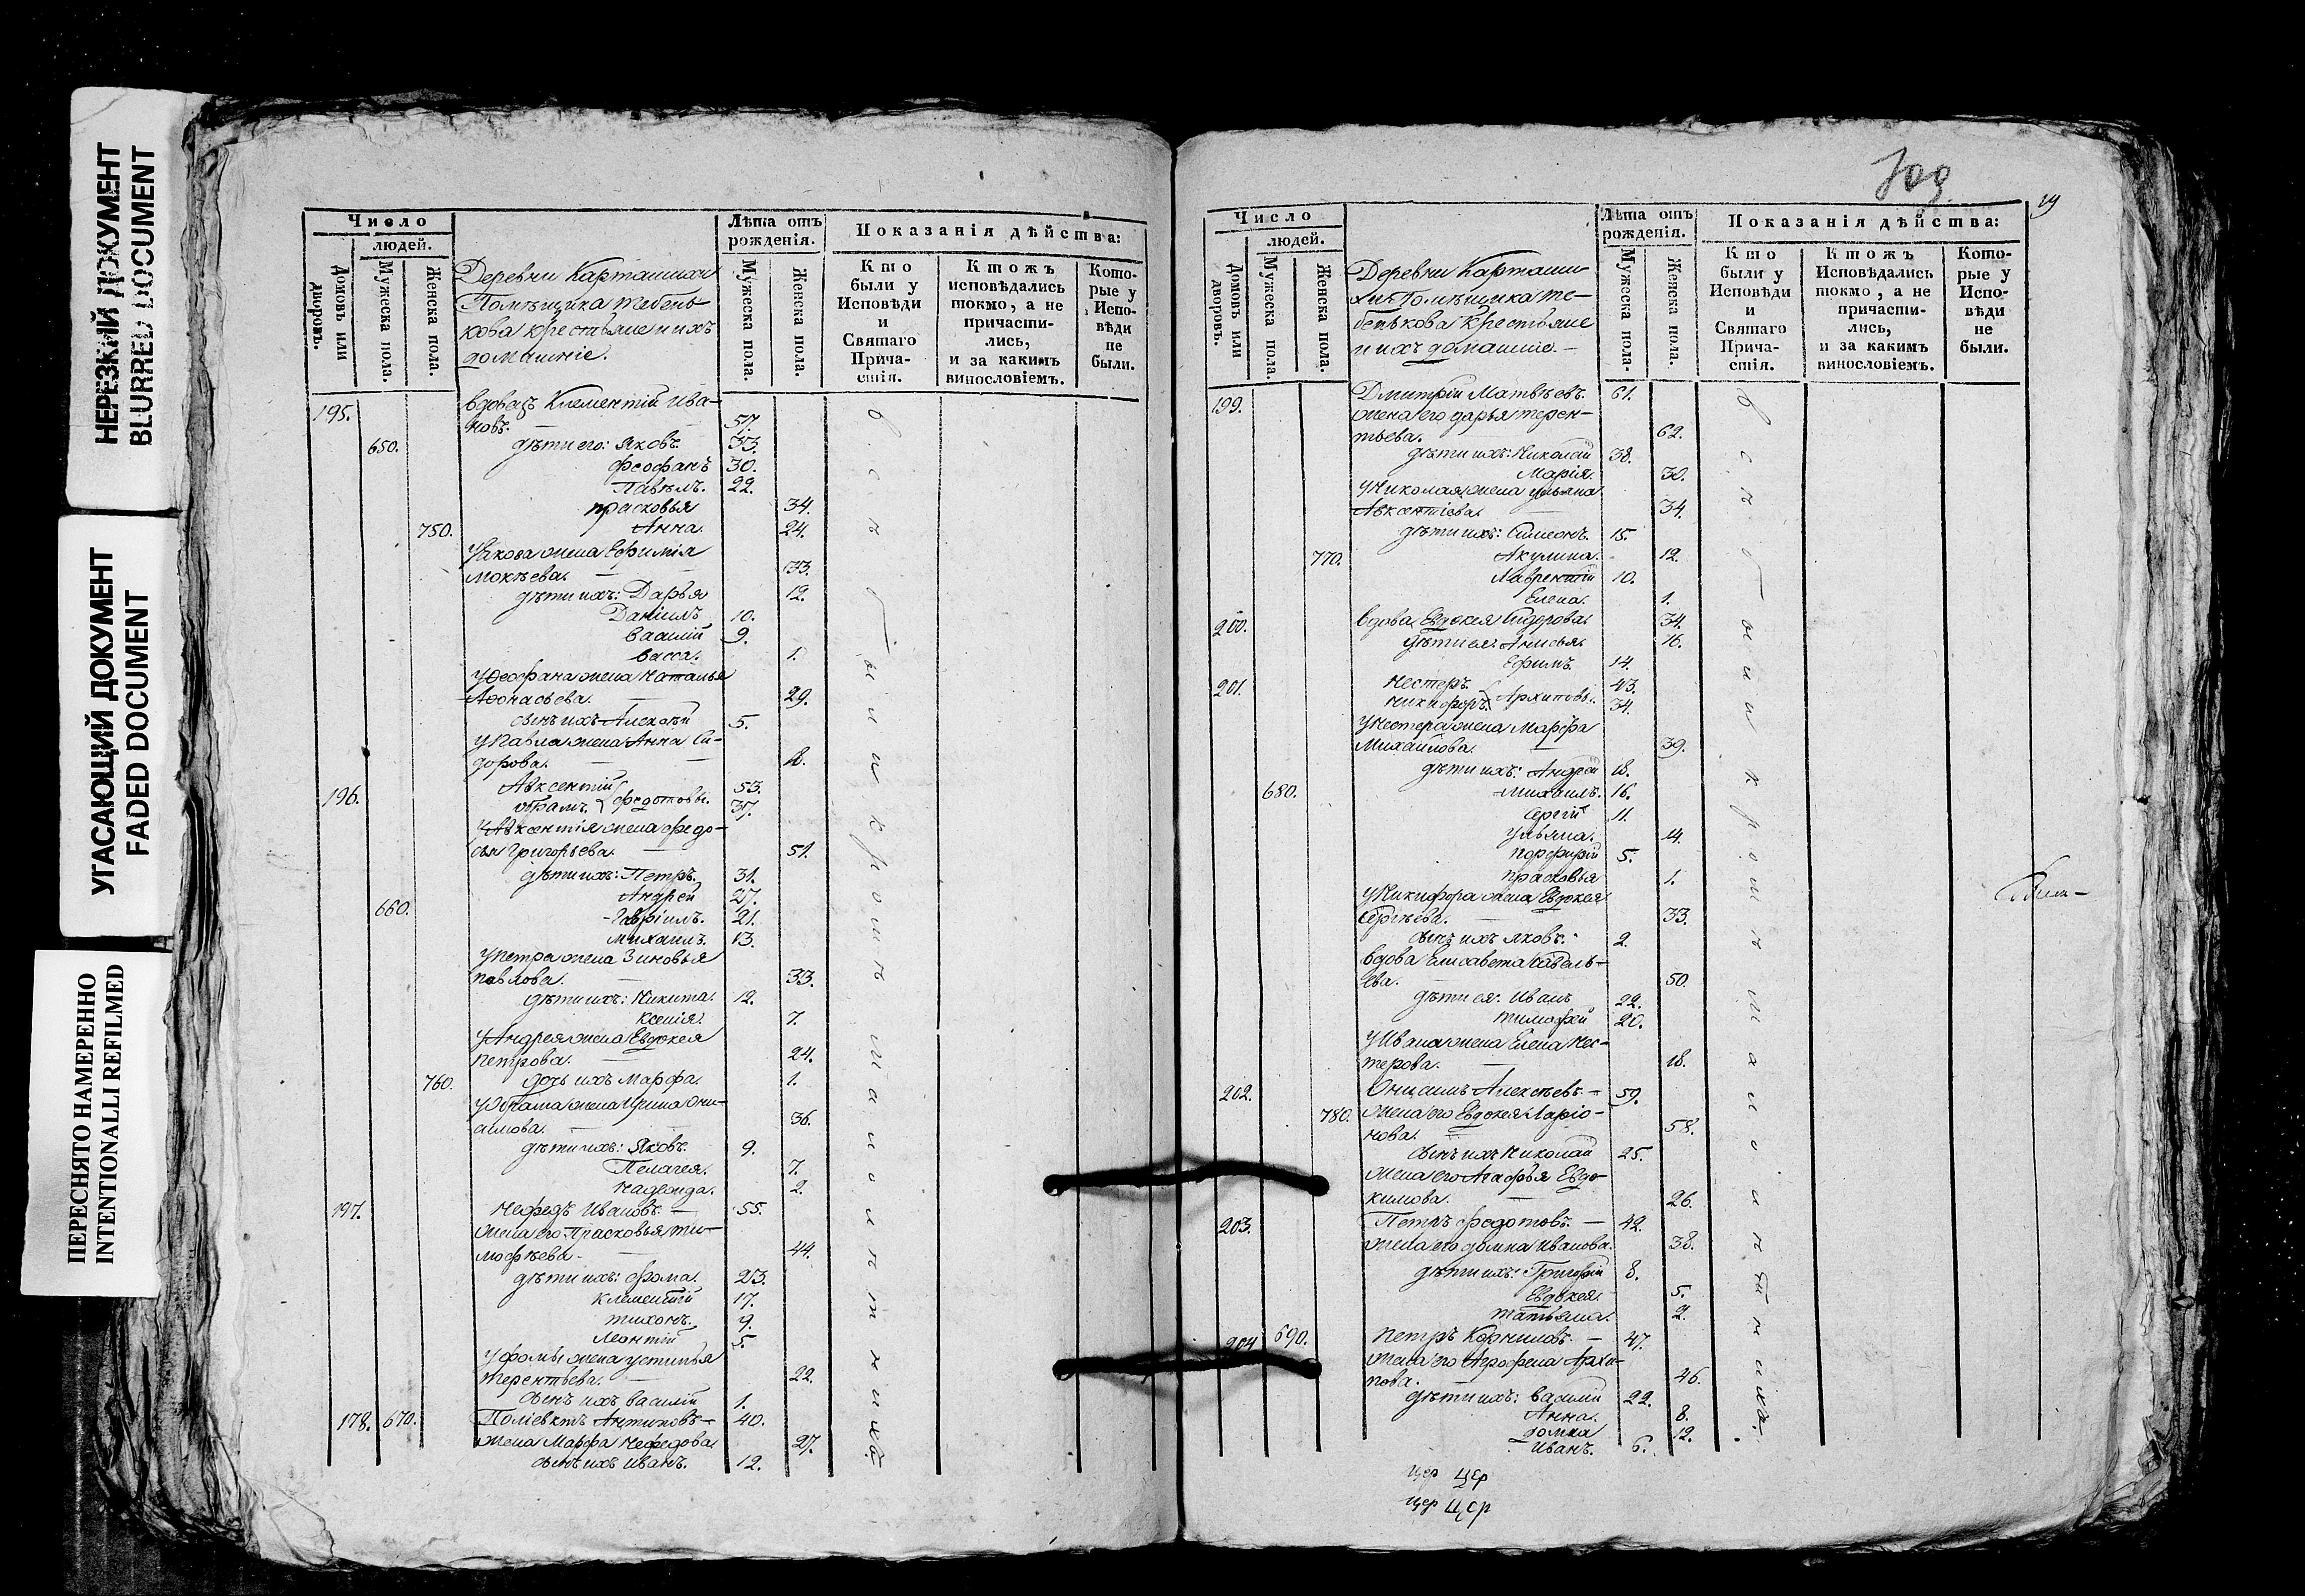 НЕРЕЗКИЙ ДОКУМЕНТ
BLURRED DOCUMENT
УГАСАЮЩИЙ ДОКУМЕНТ
FADED DOCUMENT
ПЕРЕСНЯТО НАМЕРЕННО
INTENTIONALLI REFILMED
Число
людей.
Домовъ или дворовъ.
Мужеска пола.
Женска пола.
Деревни Карташихи
Помѣщика Тебень-
кова крестьяне и ихъ
домашніе.
Лѣта отъ рожденія.
Мужеска пола.
Женска пола.
Показанія дѣйства:
Кто были у Исповѣди и Святаго Прича-стія.
Ктожъ исповѣдались токмо, а не причасти-лись, и за какимъ винословіемъ.
Кото-рые у Испо-вѣди не были.
195. вдовецъ Клементій Ива-
новъ. 57.
650. дѣти его: Яковъ. 33.
Феофанъ 30.
Павелъ. 22.
Прасковья 34.
750. Анна. 24.
У Якова жена Ефимія
Мокѣева. 33.
дѣти ихъ: Дарья 12.
Даніилъ 10.
Василій 9.
Васса. 1.
У Феофана жена Наталья
Афонасьева. 29.
сынъ ихъ Алексѣй 5.
У Павла жена Анна Си-
дорова. 18.
196. Авксентій 53.
Абрамъ. Федотовы. 37.
У Авксентія жена Федо-
сья Григорьева. 51.
дѣти ихъ: Петръ. 31.
Андрей 27.
660. Гавріилъ. 21.
Михаилъ. 13.
У Петра жена Зиновья
Павлова. 33.
дѣти ихъ: Никита. 12.
Ксенія. 7.
У Андрея жена Евдокея
Петрова. 24.
760. дочь ихъ Марфа. 1.
У Абрама жена Ирина Они-
симова. 36.
дѣти ихъ: Яковъ. 9.
Пелагея. 7.
Надежда. 2.
197. Нефедъ Ивановъ. 55.
жена его Прасковья Ти-
мофѣева. 44.
дѣти ихъ: Фома. 23.
Клементій 17.
Тихонъ. 9.
Леонтій 5.
У Фомы жена Устинья
Терентьева. 22.
сынъ ихъ Василій 1.
178. 670. Поліевктъ Антиповъ 40.
жена Марфа Нефедова 27.
сынъ ихъ Иванъ. 12.
19
Число
людей.
Домовъ или дворовъ.
Мужеска пола.
Женска пола.
Деревни Карташи-
хи Помѣщика Те-
бенькова крестьяне
и ихъ домашніе.
Лѣта отъ рожденія.
Мужеска пола.
Женска пола.
Показанія дѣйства:
Кто были у Исповѣди и Святаго Прича-стія.
Ктожъ Исповѣдались токмо, а не причасти-лись, и за какимъ винословіемъ.
Кото-рые у Испо-вѣди не были.
199. Дмитрій Матвѣевъ. 61.
жена его Дарья Терен-
тьева. 62.
дѣти ихъ: Николай 38.
Марія. 30.
У Николая жена Ульяна
Авксентіева. 34.
дѣти ихъ: Симеонъ. 15.
770. Акулина. 12.
Лаврентій 10.
Елена. 1.
200. вдова Евдокея Сидорова. 34.
дѣти ея: Анисья. 16.
Ефимъ. 14.
201. Нестеръ. 43.
Никифоръ. Архиповы. 34.
У Нестера жена Марфа
Михайлова. 39.
дѣти ихъ: Андрей 18.
680. Михаилъ. 16.
Сергій 11.
Ульяна. 14.
Порфирій 5.
Прасковья 1.
У Никифора жена Евдокея
Сергѣева. 33.
сынъ ихъ Яковъ. 2.
вдова Елисавета Савель-
ева. 50.
дѣти ея: Иванъ 22.
Тимофей 20.
У Ивана жена Елена Нес-
терова. 18.
202. Онисимъ Алексѣевъ. 59.
780. жена его Евдокея Ларіо-
нова. 58.
сынъ ихъ Николай 25.
жена его Агафья Евдо-
кимова. 26.
203. Петръ Федотовъ. 42.
жена его Домна Иванова. 38.
дѣти ихъ: Григорій 8.
Евдокея. 5.
Татьяна. 2.
204. 690. Петръ Корниловъ. 47.
жена его Аграфена Архи-
пова. 46.
дѣти ихъ: Василій 22.
Анна. 8.
Домна 12.
Иванъ. 6.
цер цер
цер цер